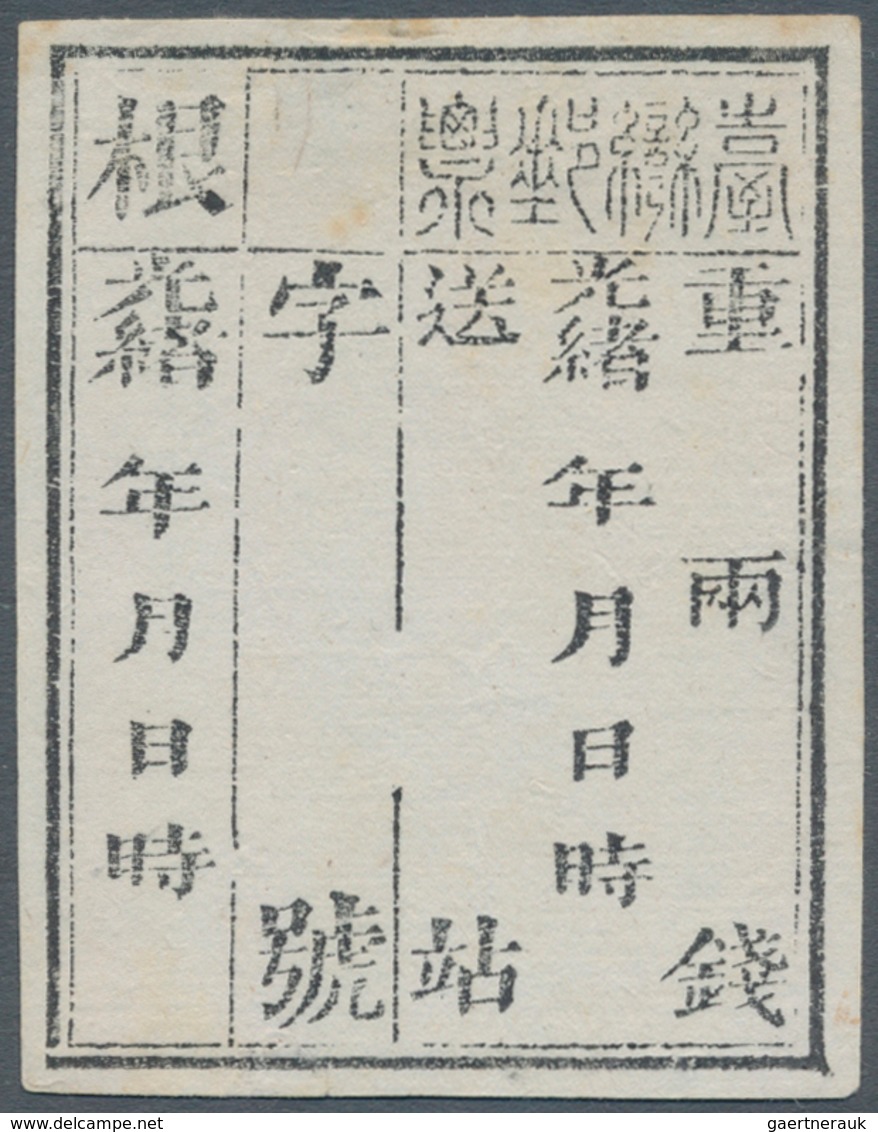 臺灣郵票
重 兩 錢
光緒 年 月 日 時
送 站
字 號
根
光緒 年 月 日 時
www.delcampe.net
gaertnerauk